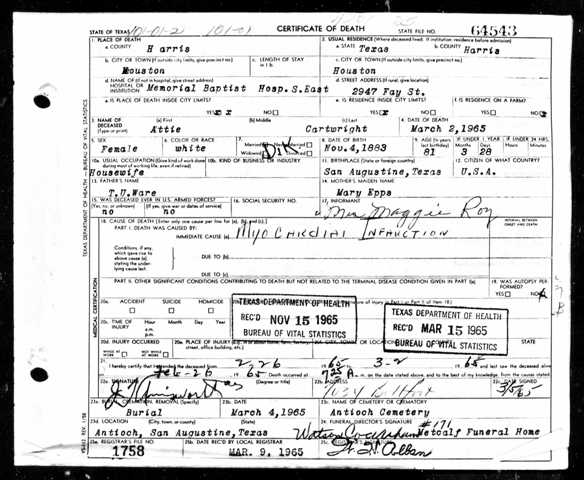 STATE OF TEXAS 101-01-2 101-01 CERTIFICATE OF DEATH STATE FILE NO. 64543
1. PLACE OF DEATH 2. USUAL RESIDENCE (Where deceased lived. If institution: residence before admission)
a. COUNTY Harris a. STATE Texas b. COUNTY Harris
b. CITY OR TOWN (If outside city limits, give precinct no.) c. LENGTH OF STAY in 1 b. c. CITY OR TOWN (If outside city limits, give precinct no.)
Houston Houston
d. NAME OF (If not in hospital, give street address) HOSPITAL OR INSTITUTION Memorial Baptist Hosp.S.East d. STREET ADDRESS (If rural, give location) 2947 Fay St.
e. IS PLACE OF DEATH INSIDE CITY LIMITS? YES NO e. IS RESIDENCE INSIDE CITY LIMITS? YES NO f. IS RESIDENCE ON A FARM? YES NO
3. NAME OF DECEASED (Type or print) (a) First (b) Middle (c) Last 4. DATE OF DEATH
Attie Cartwright March 2,1965
5. SEX 6. COLOR OR RACE 7. Married Widowed 8. DATE OF BIRTH 9. AGE (In years last birthday) IF UNDER 1 YEAR IF UNDER 24 HRS.
Female white Nov.4,1883 81 3 28
10a. USUAL OCCUPATION (Give kind of work done during most of working life, even if retired) 10b. KIND OF BUSINESS OR INDUSTRY 11. BIRTHPLACE (State or foreign country) 12. CITIZEN OF WHAT COUNTRY?
Housewife San Augustine,Texas U.S.A.
13. FATHER'S NAME 14. MOTHER'S MAIDEN NAME
T.U.Ware Mary Epps
15. WAS DECEASED EVER IN U.S. ARMED FORCES? 16. SOCIAL SECURITY NO. 17. INFORMANT
(Yes, no, or unknown) (If yes, give war or dates of service)
no no Mrs Maggie Roy
18. CAUSE OF DEATH (Enter only one cause per line for (a), (b), and (c).) INTERVAL BETWEEN ONSET AND DEATH
PART I. DEATH WAS CAUSED BY:
IMMEDIATE CAUSE (a) Myocardial Infarction
Conditions, if any, which gave rise to above cause (a), stating the underlying cause last. DUE TO (b)
DUE TO (c)
PART II. OTHER SIGNIFICANT CONDITIONS CONTRIBUTING TO DEATH BUT NOT RELATED TO THE TERMINAL DISEASE CONDITION GIVEN IN PART I(a) 19. WAS AUTOPSY PERFORMED? YES NO
20a. ACCIDENT SUICIDE HOMICIDE
20c. TIME OF INJURY Hour Month Day Year a.m. p.m.
20d. INJURY OCCURRED
TEXAS DEPARTMENT OF HEALTH
REC'D NOV 15 1965
BUREAU OF VITAL STATISTICS
TEXAS DEPARTMENT OF HEALTH
REC'D MAR 15 1965
BUREAU OF VITAL STATISTICS
21. I hereby certify that I attended the deceased from 2-26 65 3-2 65 and last saw the deceased alive
Feb 26 65 Death occurred at A. m. on the date stated above, and to the best of my knowledge, from the causes stated.
22a. SIGNATURE (Degree or title) 22b. ADDRESS 22c. DATE SIGNED
23a. BURIAL, CREMATION, REMOVAL (Specify) 23b. DATE 23c. NAME OF CEMETERY OR CREMATORY
Burial March 4,1965 Antioch Cemetery
23d. LOCATION (City, town, or county) (State) 24. FUNERAL DIRECTOR'S SIGNATURE #171
Antioch, San Augustine,Texas Metcalf Funeral Home
25a. REGISTRAR'S FILE NO. 25b. DATE REC'D BY LOCAL REGISTRAR 25c. REGISTRAR'S SIGNATURE
1758 MAR. 9, 1965
TEXAS DEPARTMENT OF HEALTH — BUREAU OF VITAL STATISTICS
MEDICAL CERTIFICATION